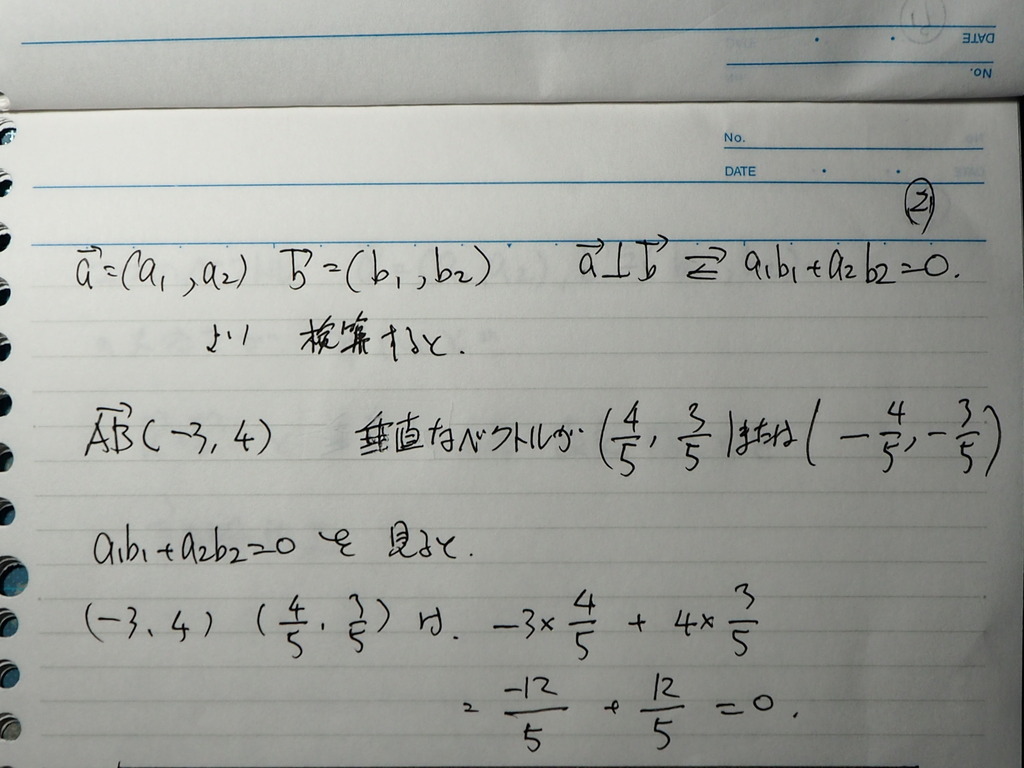 DATE
No.
No.
DATE
②
a⃗=(a₁,a₂) b⃗=(b₁,b₂) a⃗⊥b⃗ ⇄ a₁b₁+a₂b₂=0.
より 検算すると.
AB⃗(-3,4) 垂直なベクトルが(4/5, 3/5)または(-4/5,-3/5)
a₁b₁+a₂b₂=0 を 見ると.
(-3,4) (4/5, 3/5)は. -3×4/5 + 4×3/5
= -12/5 + 12/5 =0.